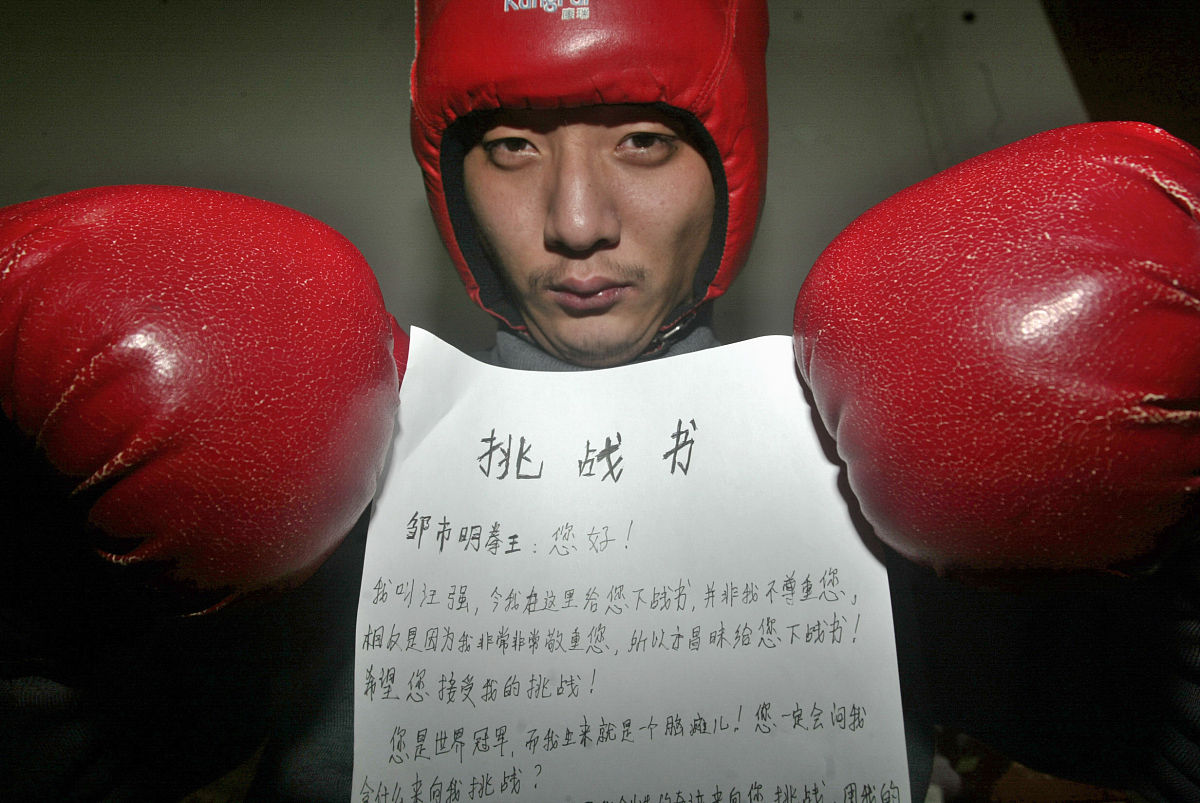 康瑞
挑战书
邹市明拳王：您好！
我叫汪强，今我在这里给您下战书，并非我不尊重您，
相反是因为我非常非常敬重您，所以才冒昧给您下战书！
希望您接受我的挑战！
您是世界冠军，而我生来就是一个脑瘫儿！您一定会问我
拿什么来向我挑战？
来向您挑战，用我的